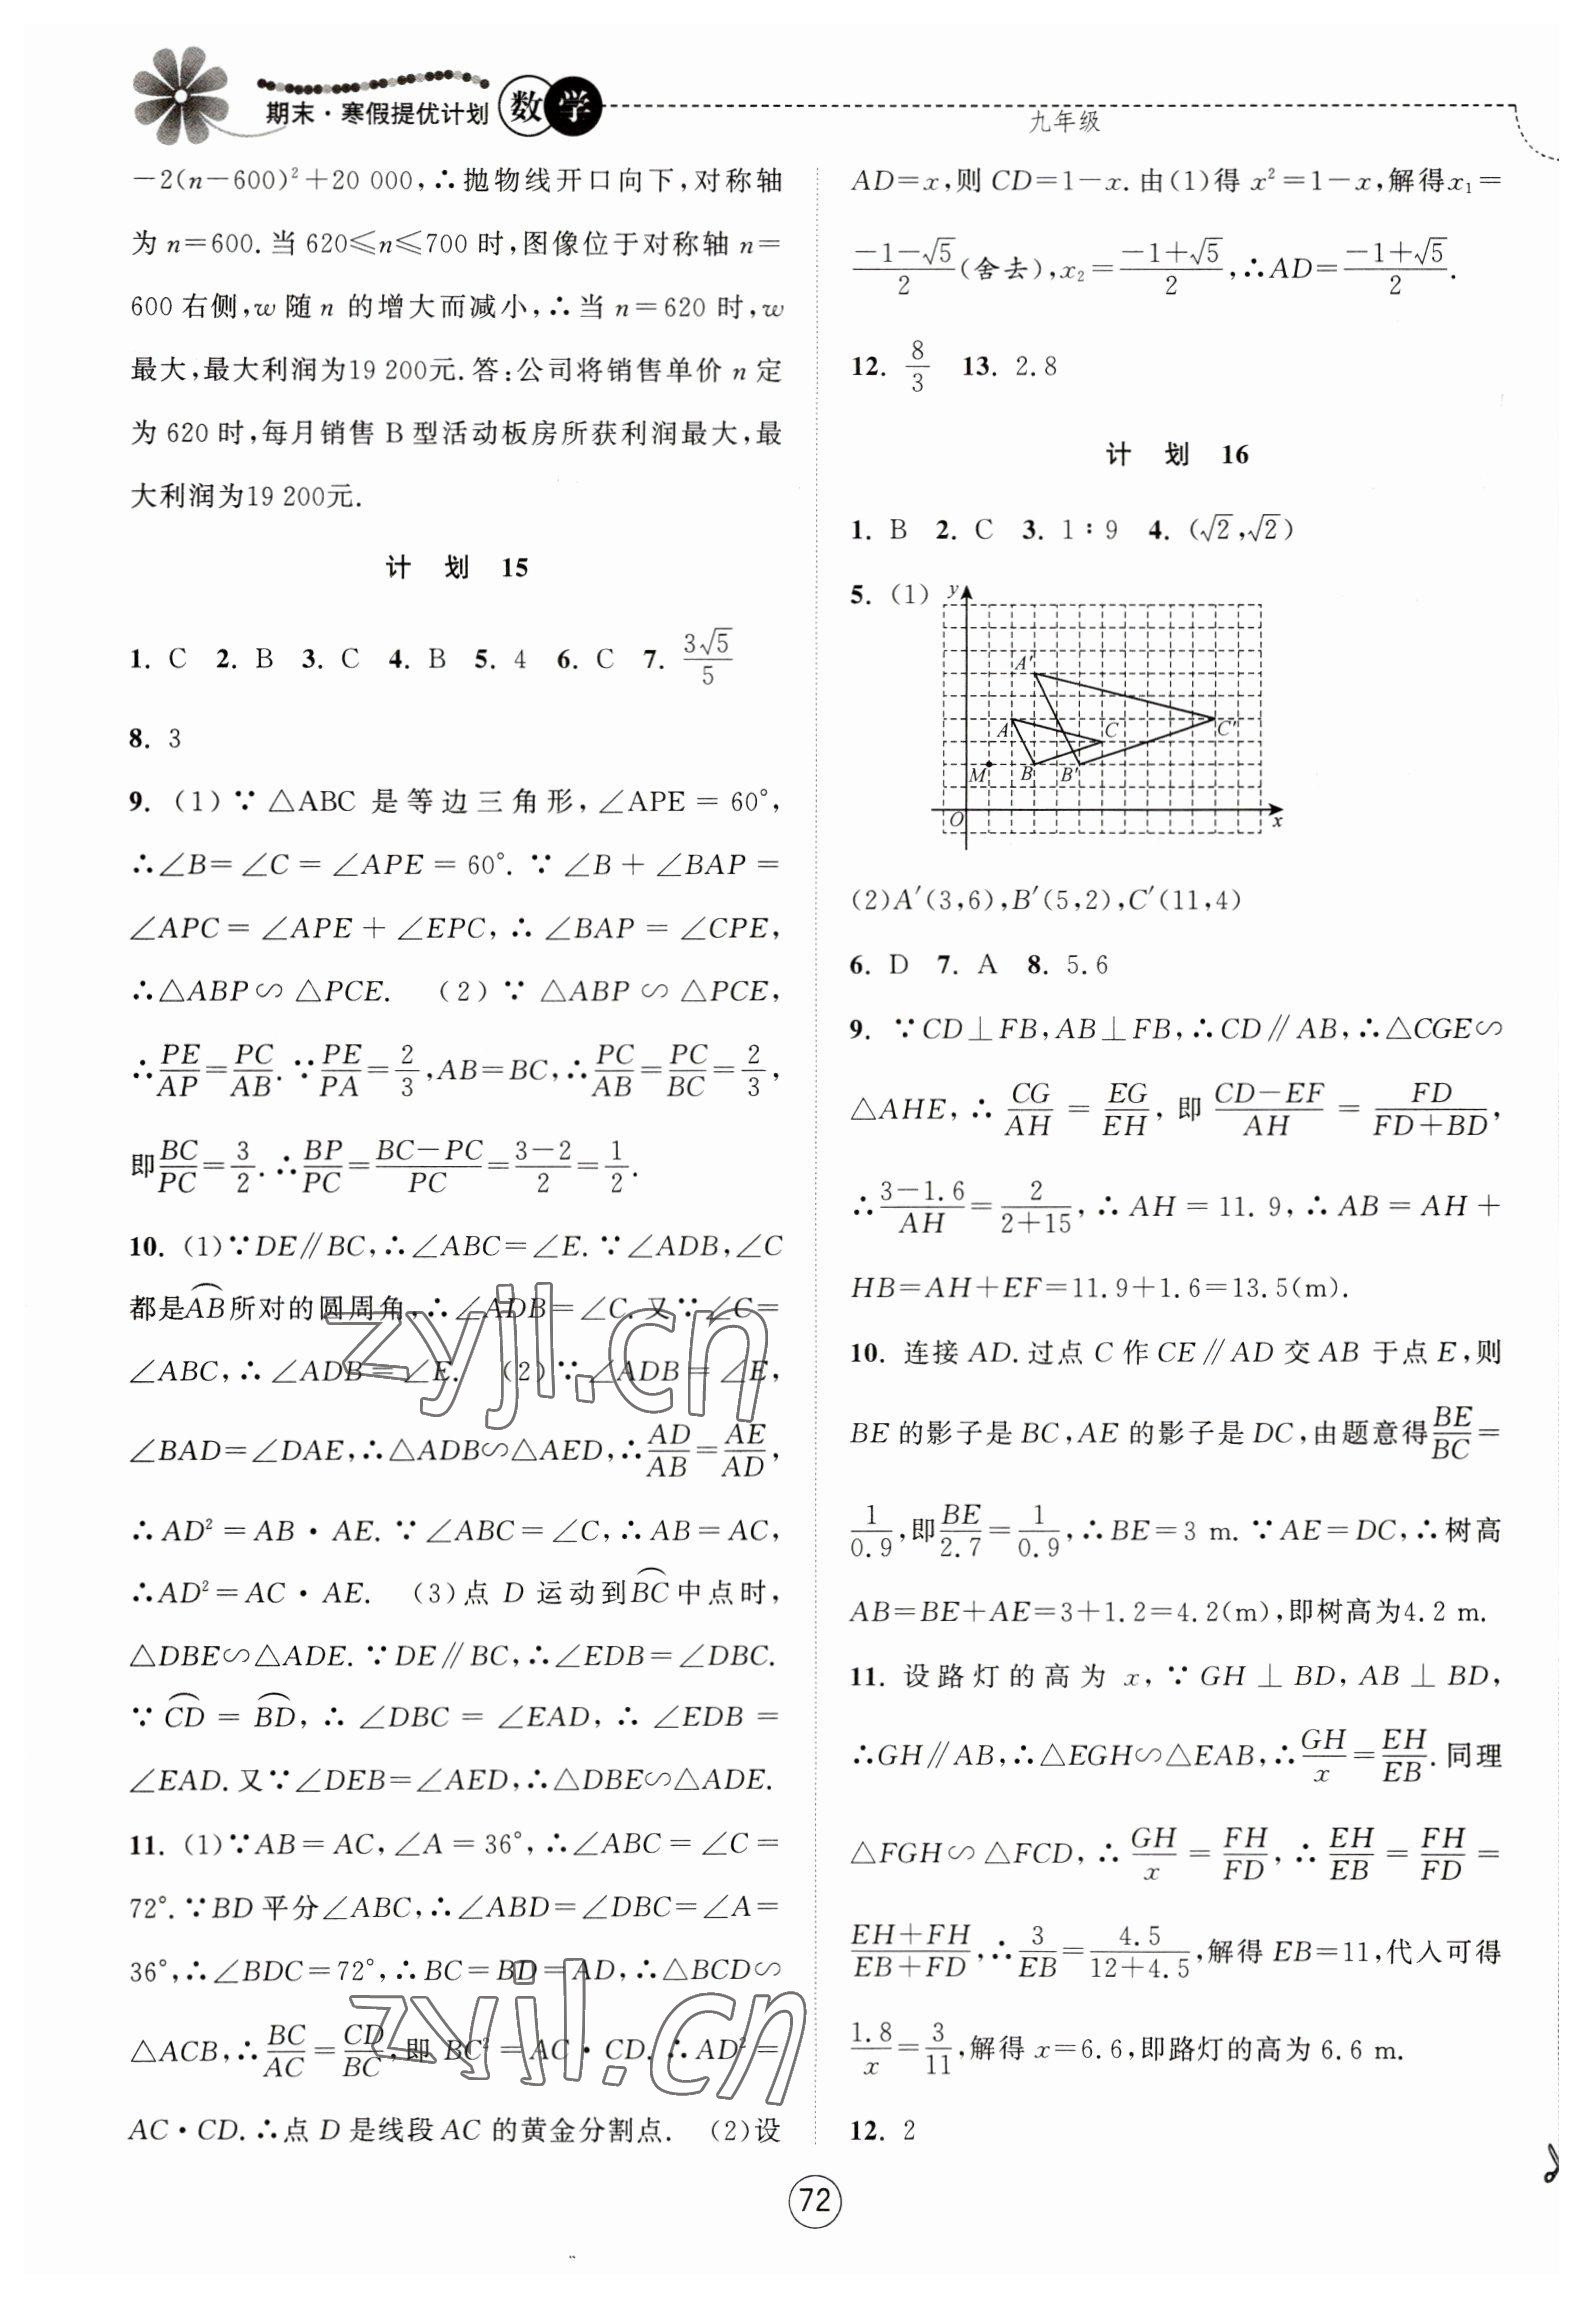 期末·寒假提优计划 数学
九年级
－2(n－600)²＋20 000,∴抛物线开口向下,对称轴
为 n＝600.当 620≤n≤700 时,图像位于对称轴 n＝
600 右侧,w 随 n 的增大而减小,∴当 n＝620 时,w
最大,最大利润为19 200元.答:公司将销售单价 n 定
为 620 时,每月销售 B 型活动板房所获利润最大,最
大利润为19 200元.
计 划 15
1. C 2. B 3. C 4. B 5. 4 6. C 7. 3√5/5
8. 3
9. (1)∵△ABC 是等边三角形,∠APE＝60°,
∴∠B＝∠C＝∠APE＝60°.∵∠B＋∠BAP＝
∠APC＝∠APE＋∠EPC,∴∠BAP＝∠CPE,
∴△ABP∽△PCE. (2)∵△ABP∽△PCE,
∴PE/AP＝PC/AB.∵PE/PA＝2/3,AB＝BC,∴PC/AB＝PC/BC＝2/3,
即BC/PC＝3/2.∴BP/PC＝(BC－PC)/PC＝(3－2)/2＝1/2.
10. (1)∵DE∥BC,∴∠ABC＝∠E.∵∠ADB,∠C
都是⌒AB所对的圆周角,∴∠ADB＝∠C.又∵∠C＝
∠ABC,∴∠ADB＝∠E. (2)∵∠ADB＝∠E,
∠BAD＝∠DAE,∴△ADB∽△AED,∴AD/AB＝AE/AD,
∴AD²＝AB·AE.∵∠ABC＝∠C,∴AB＝AC,
∴AD²＝AC·AE. (3)点 D 运动到⌒BC中点时,
△DBE∽△ADE.∵DE∥BC,∴∠EDB＝∠DBC.
∵⌒CD＝⌒BD,∴∠DBC＝∠EAD,∴∠EDB＝
∠EAD.又∵∠DEB＝∠AED,∴△DBE∽△ADE.
11. (1)∵AB＝AC,∠A＝36°,∴∠ABC＝∠C＝
72°.∵BD 平分∠ABC,∴∠ABD＝∠DBC＝∠A＝
36°,∴∠BDC＝72°,∴BC＝BD＝AD,∴△BCD∽
△ACB,∴BC/AC＝CD/BC,即 BC²＝AC·CD.∴AD²＝
AC·CD.∴点 D 是线段 AC 的黄金分割点. (2)设
AD＝x,则 CD＝1－x.由(1)得 x²＝1－x,解得x₁＝
(－1－√5)/2(舍去),x₂＝(－1＋√5)/2,∴AD＝(－1＋√5)/2.
12. 8/3 13. 2.8
计 划 16
1. B 2. C 3. 1∶9 4. (√2,√2)
5. (1)
y
A′
A
C
C′
M
B
B′
O
x
(2)A′(3,6),B′(5,2),C′(11,4)
6. D 7. A 8. 5.6
9. ∵CD⊥FB,AB⊥FB,∴CD∥AB,∴△CGE∽
△AHE,∴CG/AH＝EG/EH,即(CD－EF)/AH＝FD/(FD＋BD),
∴(3－1.6)/AH＝2/(2＋15),∴AH＝11.9,∴AB＝AH＋
HB＝AH＋EF＝11.9＋1.6＝13.5(m).
10. 连接 AD.过点 C 作 CE∥AD 交 AB 于点 E,则
BE 的影子是 BC,AE 的影子是 DC,由题意得BE/BC＝
1/0.9,即BE/2.7＝1/0.9,∴BE＝3 m.∵AE＝DC,∴树高
AB＝BE＋AE＝3＋1.2＝4.2(m),即树高为4.2 m.
11. 设路灯的高为 x,∵GH⊥BD,AB⊥BD,
∴GH∥AB,∴△EGH∽△EAB,∴GH/x＝EH/EB.同理
△FGH∽△FCD,∴GH/x＝FH/FD,∴EH/EB＝FH/FD＝
(EH＋FH)/(EB＋FD),∴3/EB＝4.5/(12＋4.5),解得 EB＝11,代入可得
1.8/x＝3/11,解得 x＝6.6,即路灯的高为 6.6 m.
12. 2
zyjl.cn
zyjl.cn
72